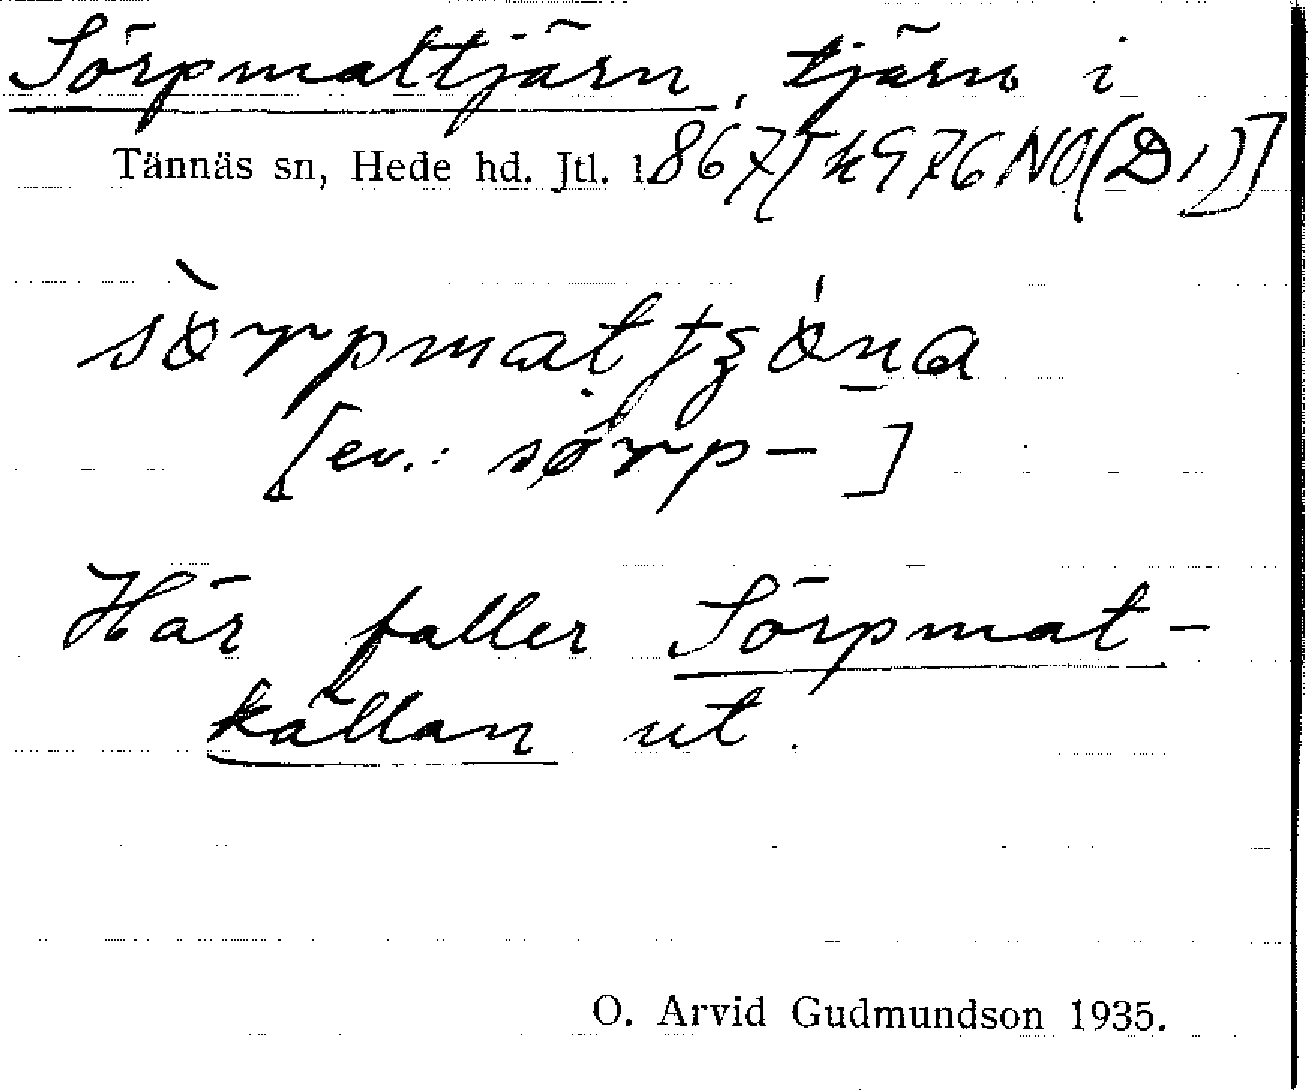 Sörpmattjärn, tjärn i
Tännäs sn, Hede hd. Jtl. l. 867 [k 976 NO (D1)]
sörpmattjöna
[ev.: sörp- ]
Här faller Sörpmat-
källan ut.
O. Arvid Gudmundson 1935.